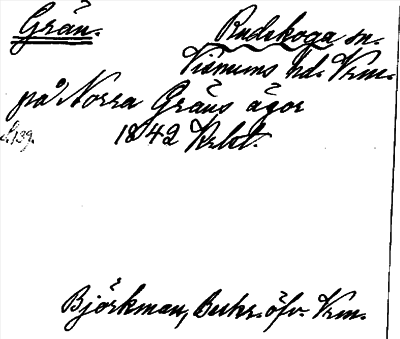 Grän. Rudskoga sn.
Visnums hd. Vrm.
på Norra Gräns ägor
s. 139. 1842 Krbt.
Björkman, Beskr. öfv. Vrm.